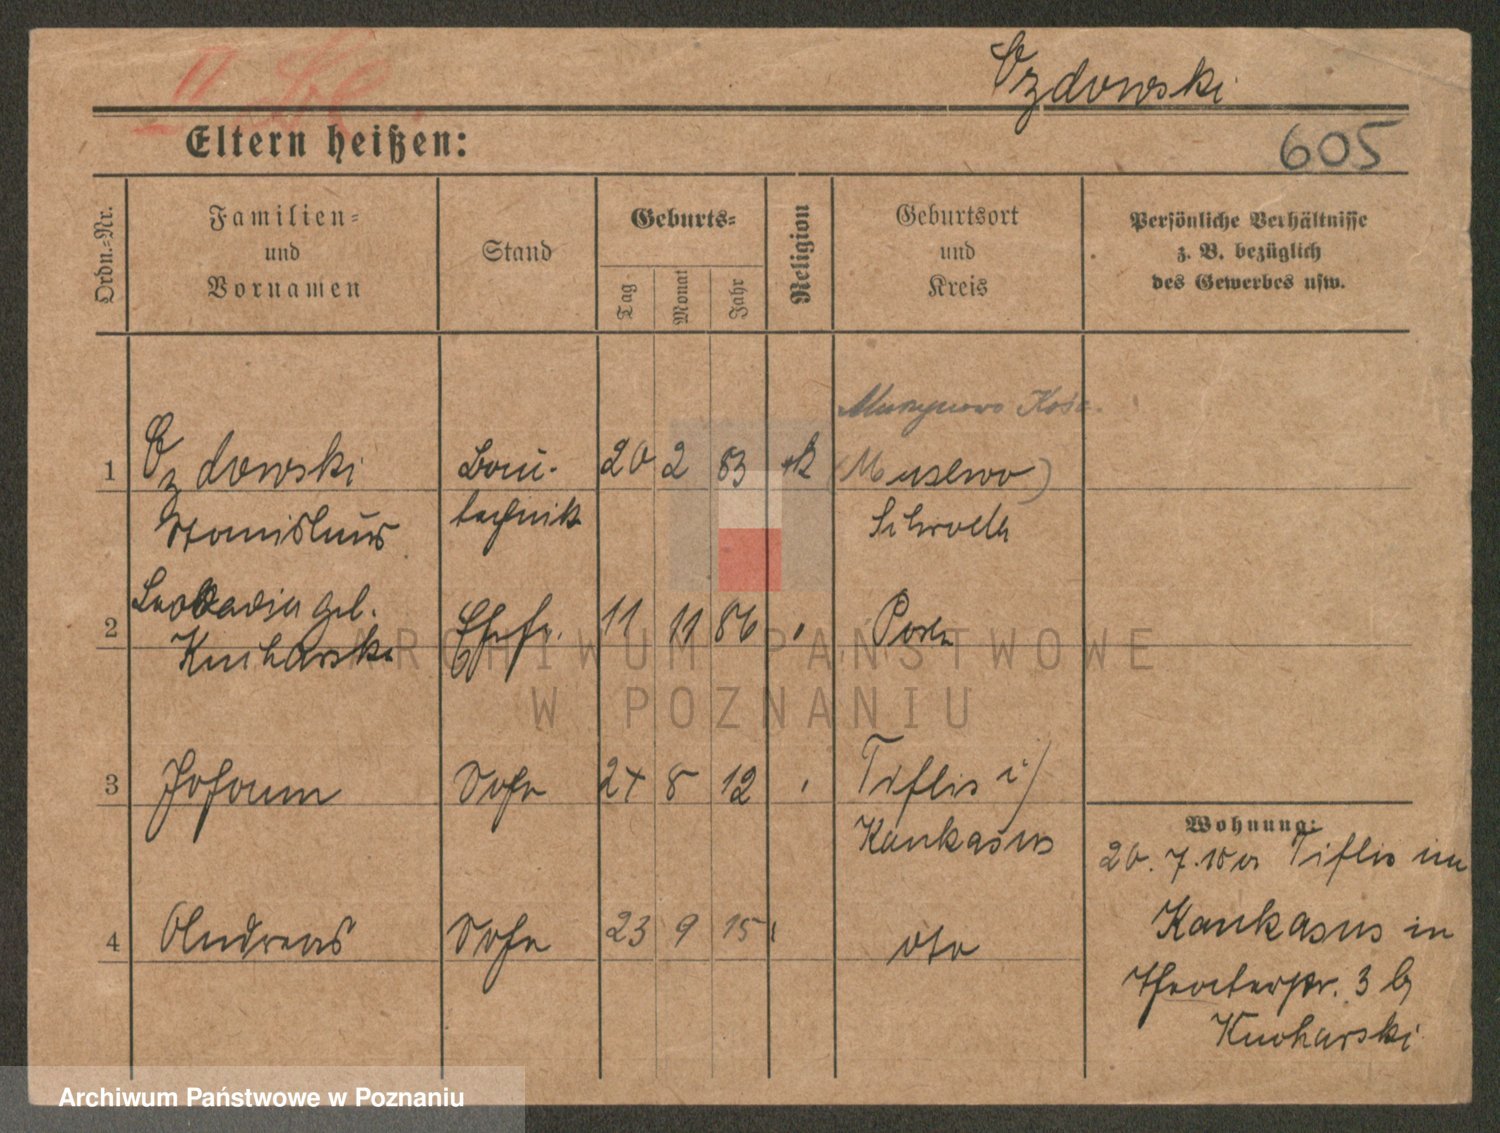 Ozdowski
Eltern heißen:
605
Ordn.-Nr.
Familien=
und
Vornamen
Stand
Geburts=
Tag
Monat
Jahr
Religion
Geburtsort
und
Kreis
Persönliche Verhältnisse
z. B. bezüglich
des Gewerbes usw.
1
Ozdowski
Stanislaus
Bau-
technik
20 2 83
k
Murzynowo Kośc.
(Muslewo)
Schroda
2
Leokadia geb.
Kucharska
Ehefr.
11 11 86
Posen
3
Johann
Sohn
24 8 12
Tiflis i/
Kaukasus
4
Andreas
Sohn
23 9 15
dto
Wohnung:
20. 7. Tiflis im
Kaukasus in
Theaterstr. 3 b
Kucharski
ARCHIWUM PAŃSTWOWE
W POZNANIU
Archiwum Państwowe w Poznaniu